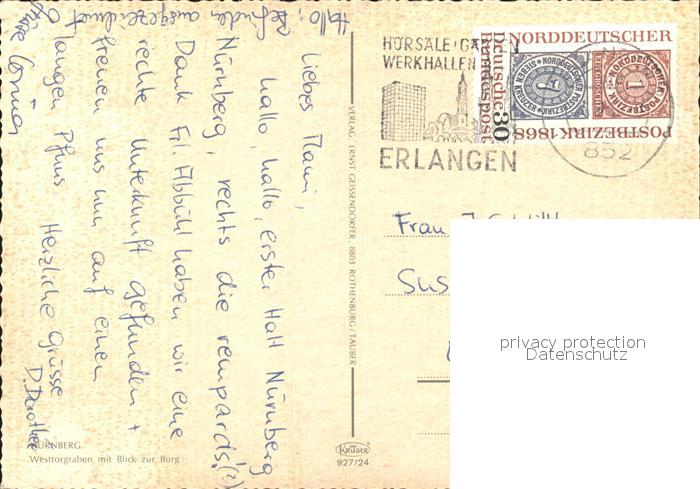 Liebes Mami,
hallo, hallo, erster Halt Nürnberg
Nürnberg, rechts die rempards!(?)
Dank Frl. Abbühl haben wir eine
rechte Unterkunft gefunden +
freuen uns nun auf einen
langen Pfuus Herzliche Grüsse
D. Dorothee
Hallo,
ausgezeichnet
Grüsse
NÜRNBERG
Westtorgraben mit Blick zur Burg
VERLAG ERNST GEISSENDÖRFER, 8803 ROTHENBURG/TAUBER
KRÜGER
927/24
HÖRSÄLE
WERKHALLEN
ERLANGEN
852
NORDDEUTSCHER
POSTBEZIRK 1868
Deutsche
Bundespost
30
NORDDEUTSCHER
POSTBEZIRK
1
NORDDEUTSCHER
POSTBEZIRK
Frau
Sus
privacy protection
Datenschutz